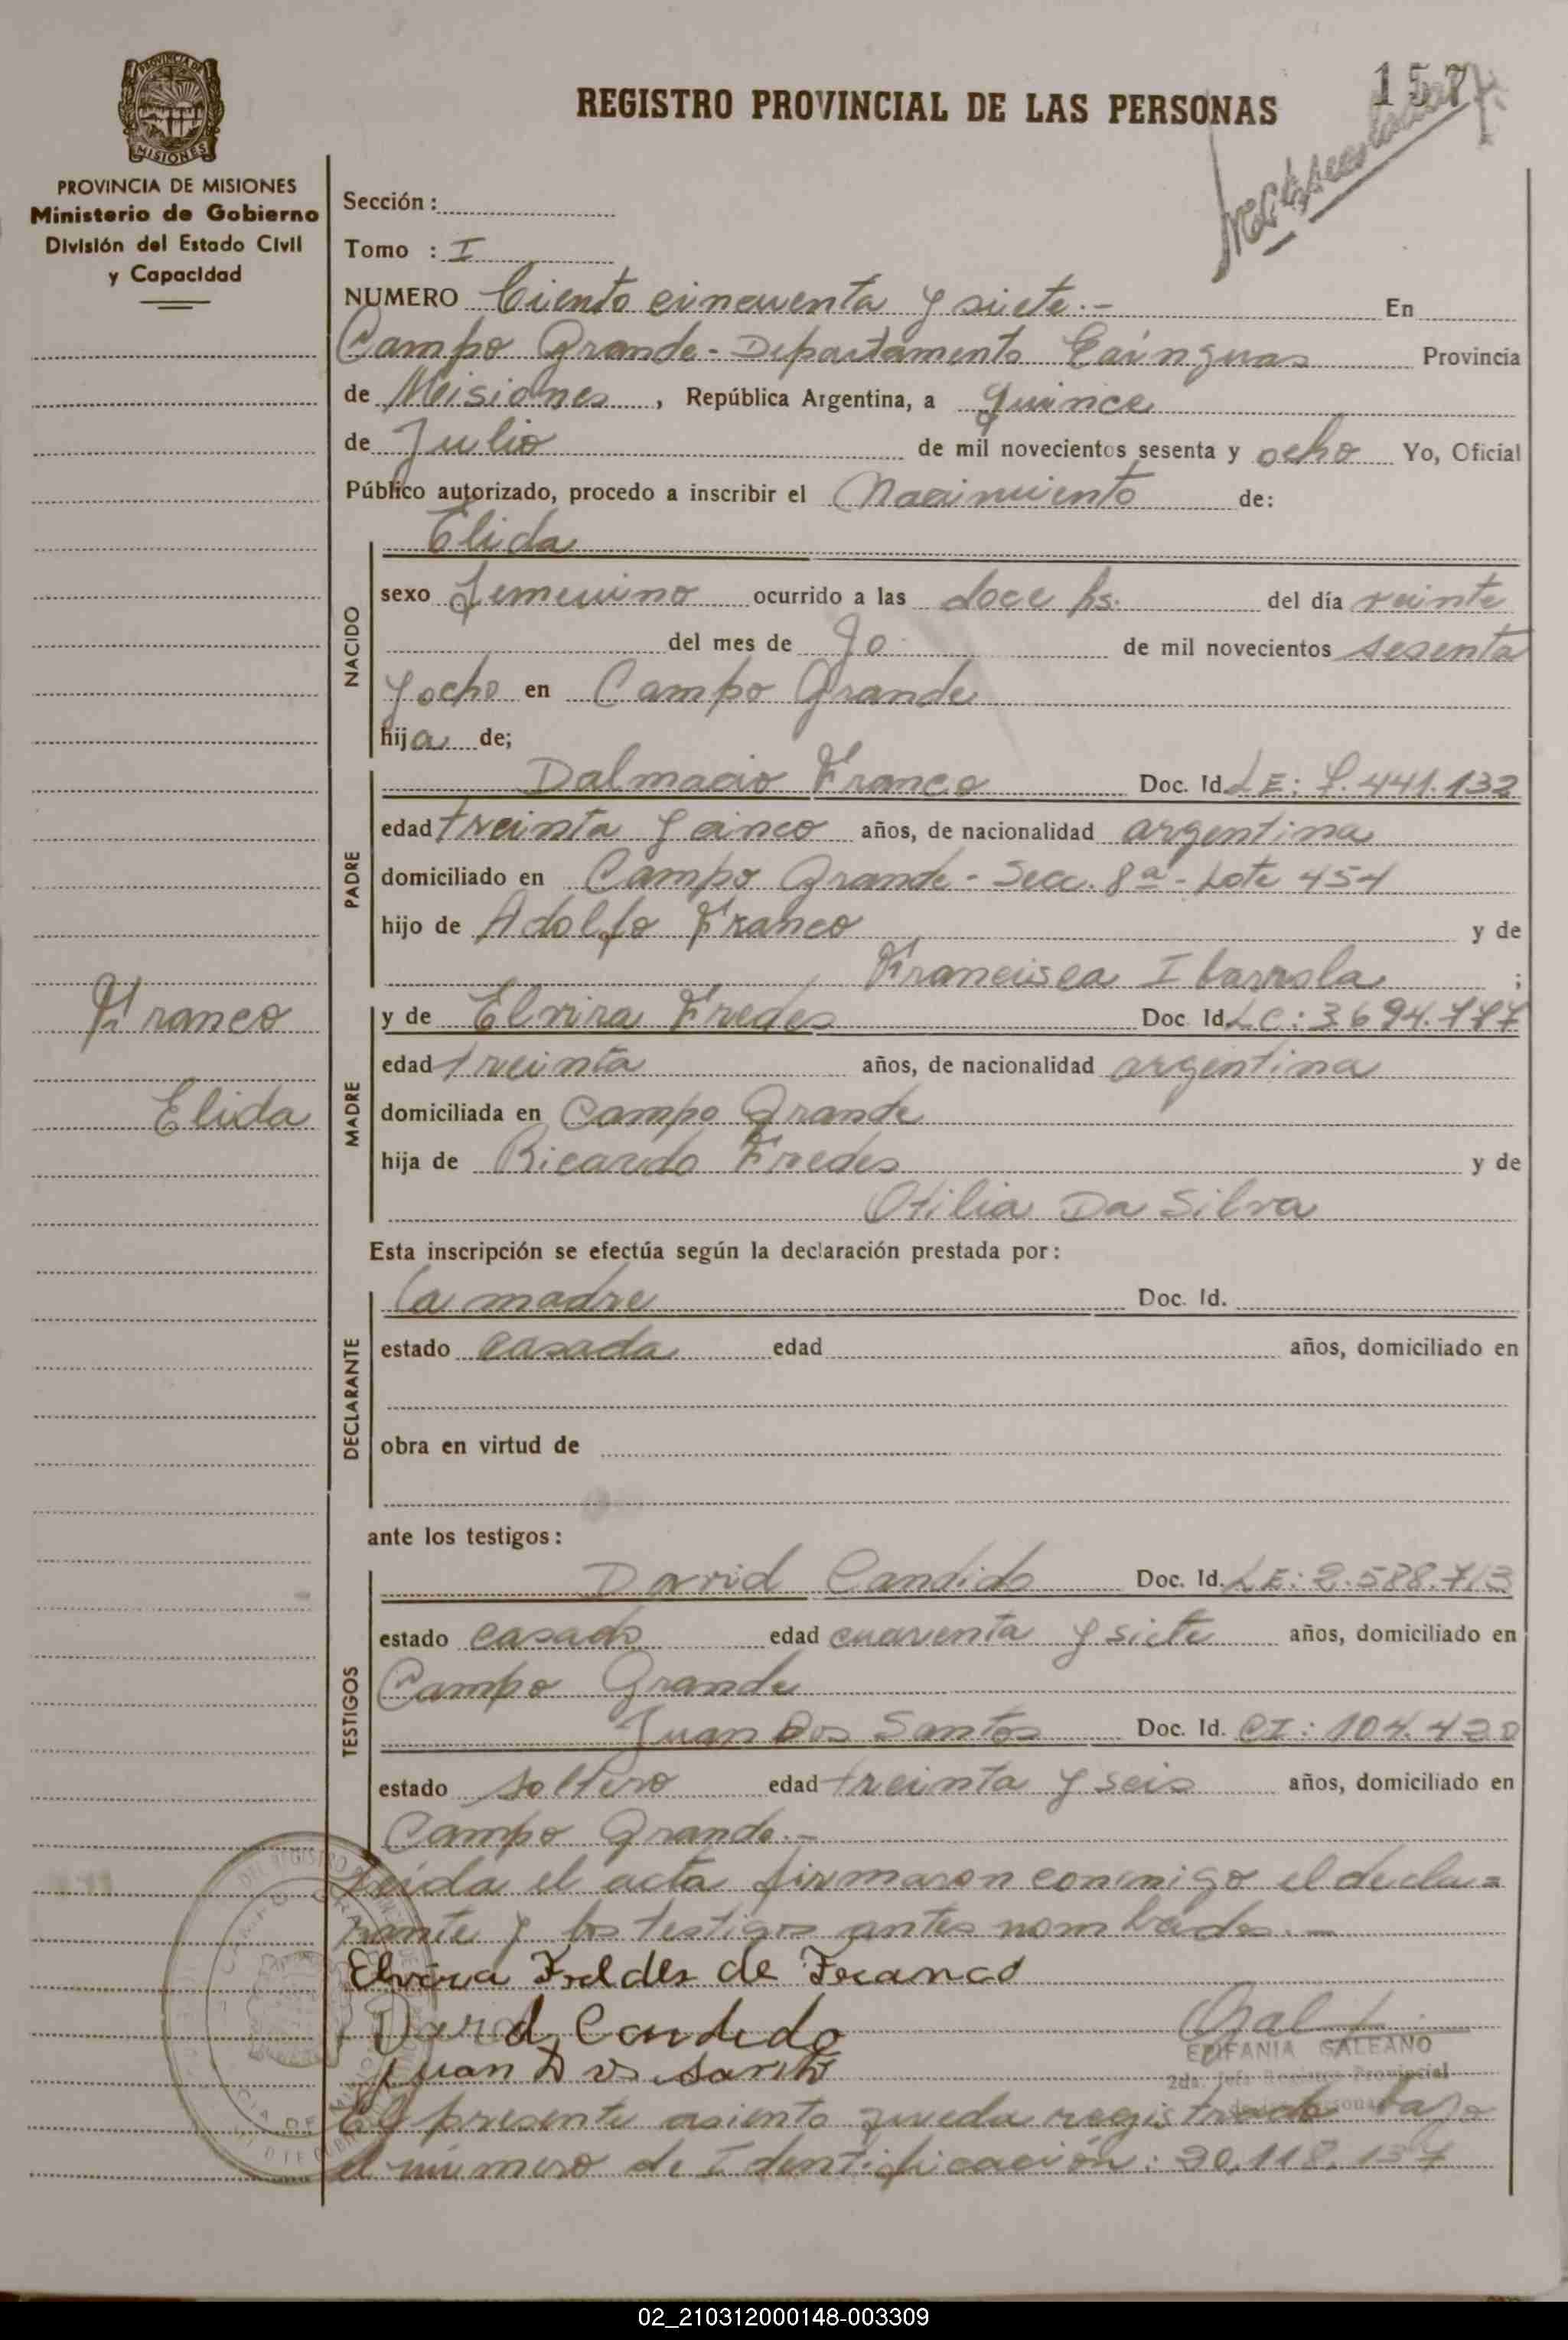 157
REGISTRO PROVINCIAL DE LAS PERSONAS
MISIONES
PROVINCIA DE MISIONES
Ministerio de Gobierno
División del Estado Civil
y Capacidad
Sección :
Tomo : I
NUMERO Ciento cincuenta y siete.- En
Campo Grande - Departamento Cainguas Provincia
de Misiones , República Argentina, a quince
de Julio de mil novecientos sesenta y ocho Yo, Oficial
Público autorizado, procedo a inscribir el Nacimiento de:
NACIDO
Elida
sexo femenino ocurrido a las doce hs. del día veinte
del mes de de mil novecientos sesenta
y ocho en Campo Grande
hija de;
PADRE
Dalmacio Franco Doc. Id. LE: 7.441.132
edad treinta y cinco años, de nacionalidad argentina
domiciliado en Campo Grande - Secc. 8ª - Lote 454
hijo de Adolfo Franco y de
Francisca Ibarrola ;
Franco
Elida
MADRE
y de Elvira Fredes Doc. Id. LC: 3.694.777
edad treinta años, de nacionalidad argentina
domiciliada en Campo Grande
hija de Ricardo Fredes y de
Otilia Da Silva
Esta inscripción se efectúa según la declaración prestada por:
DECLARANTE
La madre Doc. Id.
estado casada edad años, domiciliado en
obra en virtud de
ante los testigos:
TESTIGOS
David Candido Doc. Id. LE: 2.588.713
estado casado edad cuarenta y siete años, domiciliado en
Campo Grande
Juan Dos Santos Doc. Id. CI: 104.420
estado soltero edad treinta y seis años, domiciliado en
Campo Grande.-
Leida el acta firmaron conmigo el decla=
rante y los testigos antes nombrados.-
Elvira Freldes de Franco
David Candido
Juan Dos Santo
EPIFANIA GALEANO
2da. Jefe Registro Provincial
El presente asiento queda registrado bajo
el número de Identificación: 20.118.137
02_210312000148-003309